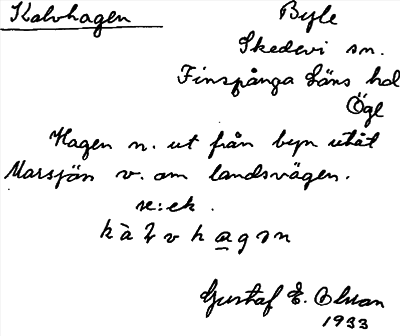 Kalvhagen Byle
Skedevi sn.
Finspånga läns hd
Ögl
Hagen n. ut från byn utåt
Marsjön v. om landsvägen.
se: ek.
k à l v h a g ə n
Gustaf E. Olsson
1933